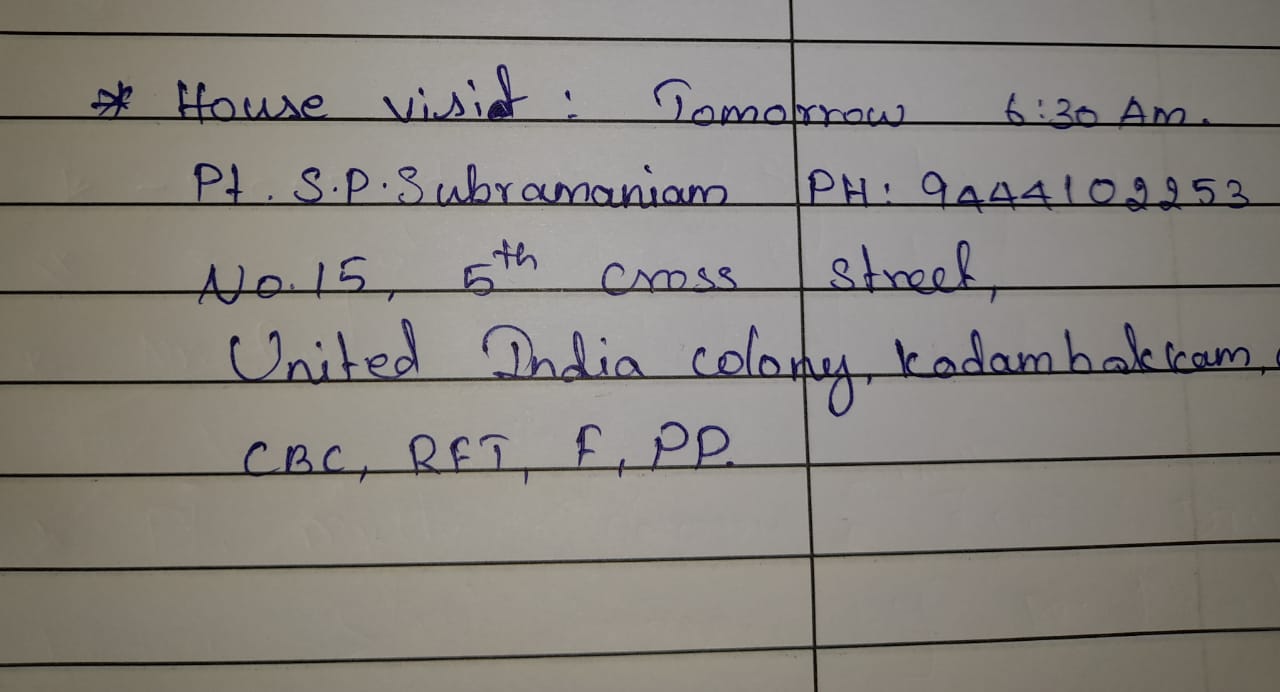 * House visit : Tomorrow 6:30 Am.
Pt. S.P. Subramaniam PH: 9444102253
No. 15, 5th cross street,
United India colony, kodambakkam,
CBC, RFT, F, PP.